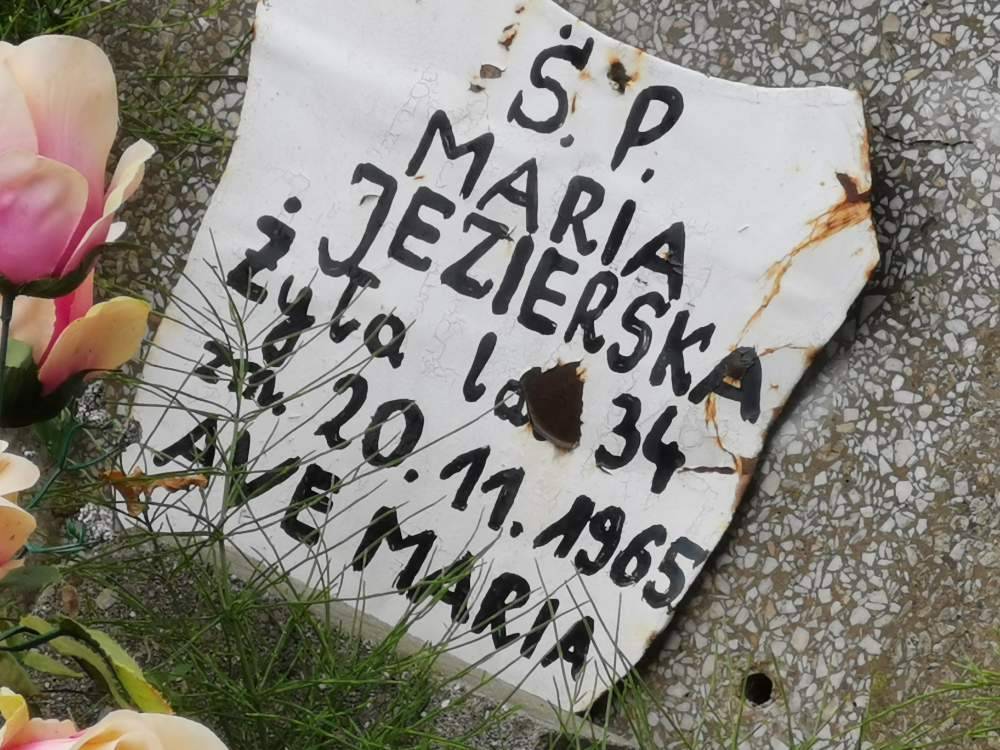 Ś. P.
MARIA
JEZIERSKA
żyła la 34
zm. 20. 11. 1965
AVE MARIA